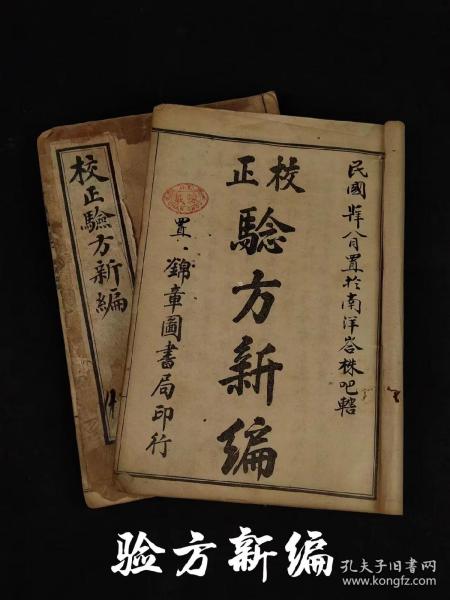 校正驗方新編
校正
驗方新編
民國
八月置於南洋峇株吧轄
置
錦章圖書局印行
验方新编
孔夫子旧书网
www.kongfz.com